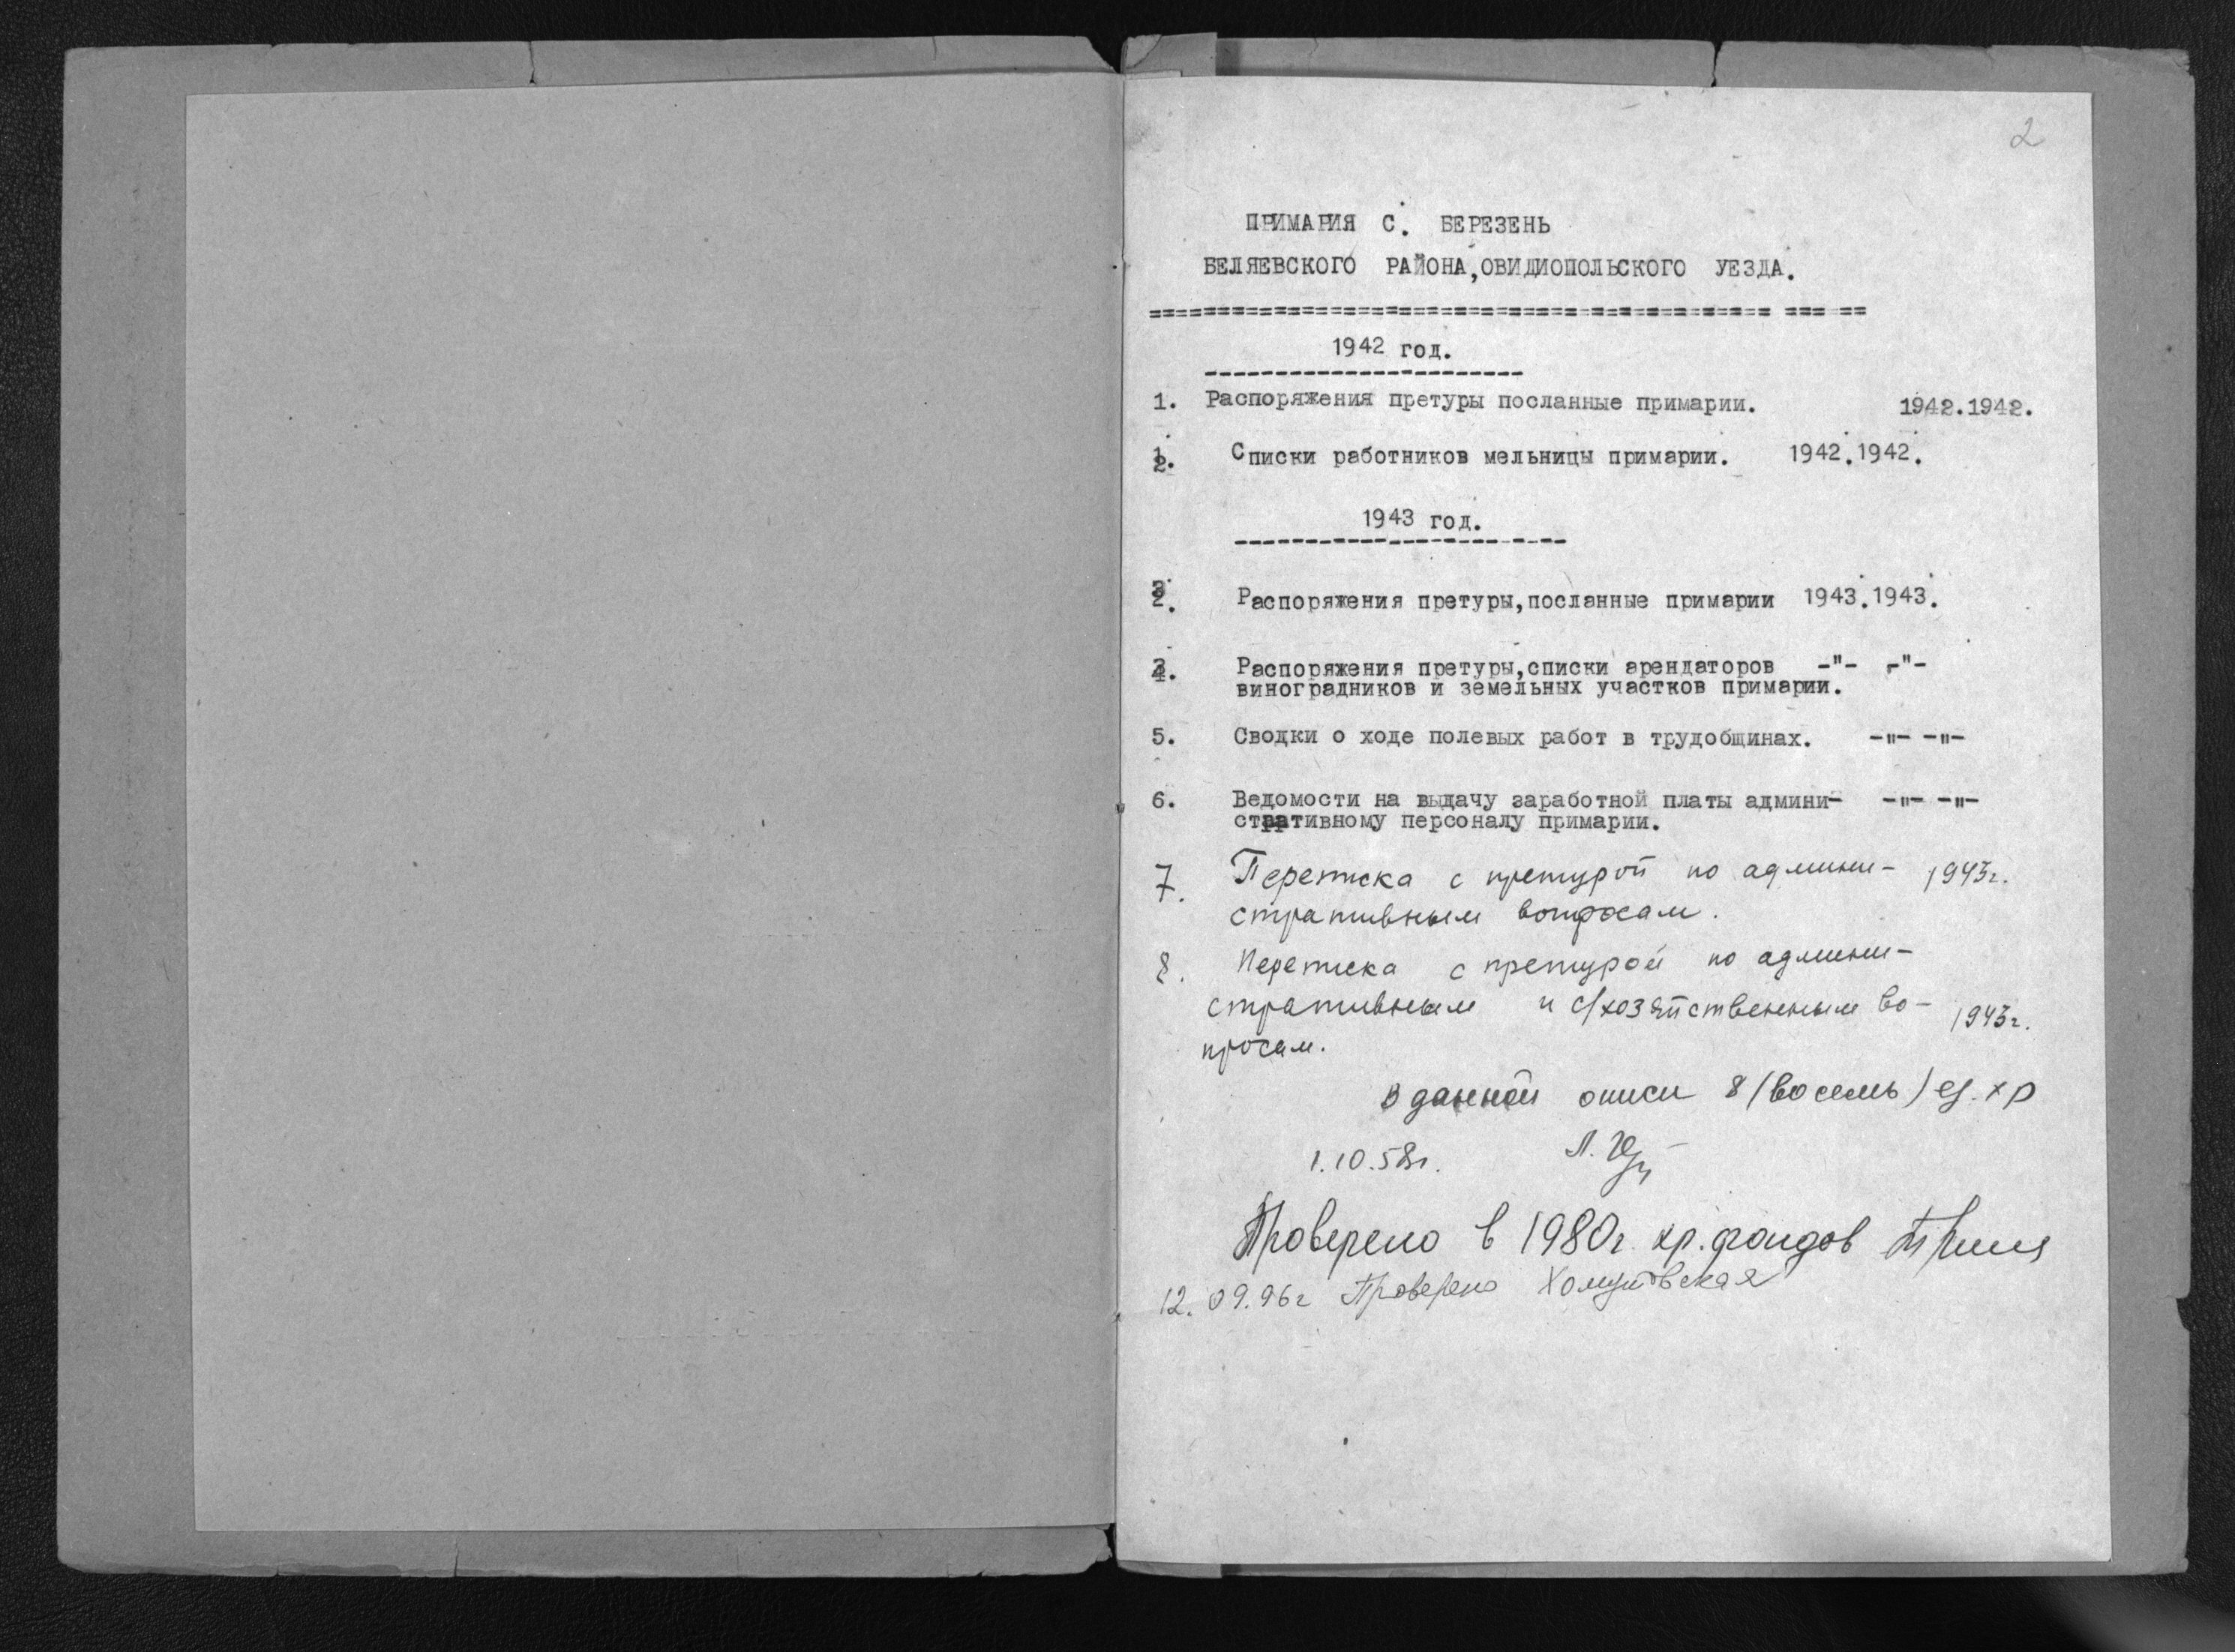 2
ПРИМАРИЯ С. БЕРЕЗЕНЬ
БЕЛЯЕВСКОГО РАЙОНА,ОВИДИОПОЛЬСКОГО УЕЗДА.
1942 год.
1. Распоряжения претуры посланные примарии. 1942.1942.
2. Списки работников мельницы примарии. 1942.1942.
1943 год.
3. Распоряжения претуры,посланные примарии 1943.1943.
4. Распоряжения претуры,списки арендаторов -"- -"-
виноградников и земельных участков примарии.
5. Сводки о ходе полевых работ в трудобщинах. -"- -"-
6. Ведомости на выдачу заработной платы админи- -"- -"-
стративному персоналу примарии.
7. Переписка с претурой по админи- 1943г.
стративным вопросам.
8. Переписка с претурой по админи-
стративным и с/хозяйственным во- 1943г.
просам.
В данной описи 8 (восемь) ед. хр
1.10.58г. Л.
Проверено в 1980г. хр. фондов
12.09.96г Проверено Хомутовская